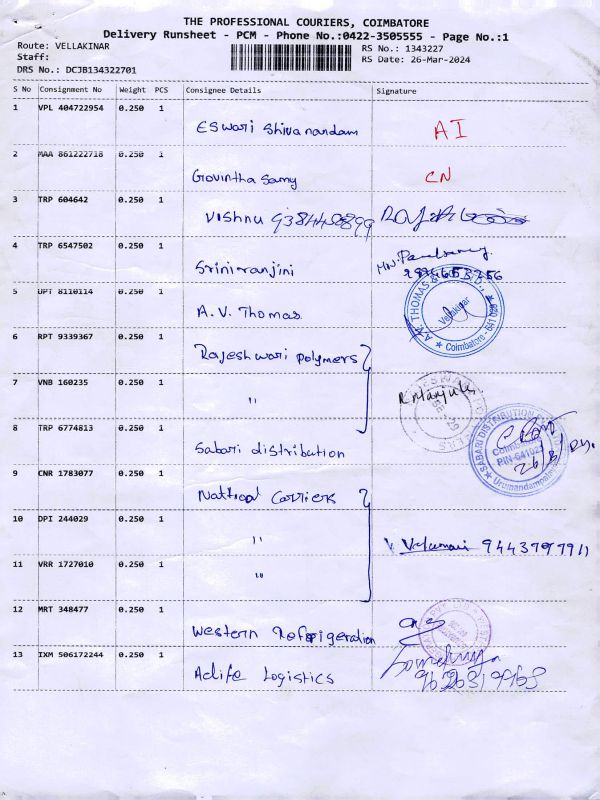 THE PROFESSIONAL COURIERS, COIMBATORE
Delivery Runsheet - PCM - Phone No.:0422-3505555 - Page No.:1
Route: VELLAKINAR
RS No.: 1343227
Staff:
RS Date: 26-Mar-2024
DRS No.: DCJB134322701
S No Consignment No Weight PCS Consignee Details Signature
1 VPL 404722954 0.250 1
Eswari Shivanandam AI
2 MAA 861222718 0.250 1
Govintha Samy CN
3 TRP 604642 0.250 1
Vishnu
4 TRP 6547502 0.250 1
Srinivranjini
5 UPT 8110114 0.250 1
A.V. Thomas
Vellakinar
Coimbatore - 641 029
6 RPT 9339367 0.250 1
Rajeshwari polymers
7 VNB 160235 0.250 1
" R Manjula
8 TRP 6774813 0.250 1
Sabari distribution
SABARI DISTRIBUTION
Coimbatore
PIN-641029
26/3/24
9 CNR 1783077 0.250 1
National Carriers
10 DPI 244029 0.250 1
"
11 VRR 1727010 0.250 1
"
12 MRT 348477 0.250 1
Western Refrigeration
13 IXM 506172244 0.250 1
Aclife Logistics